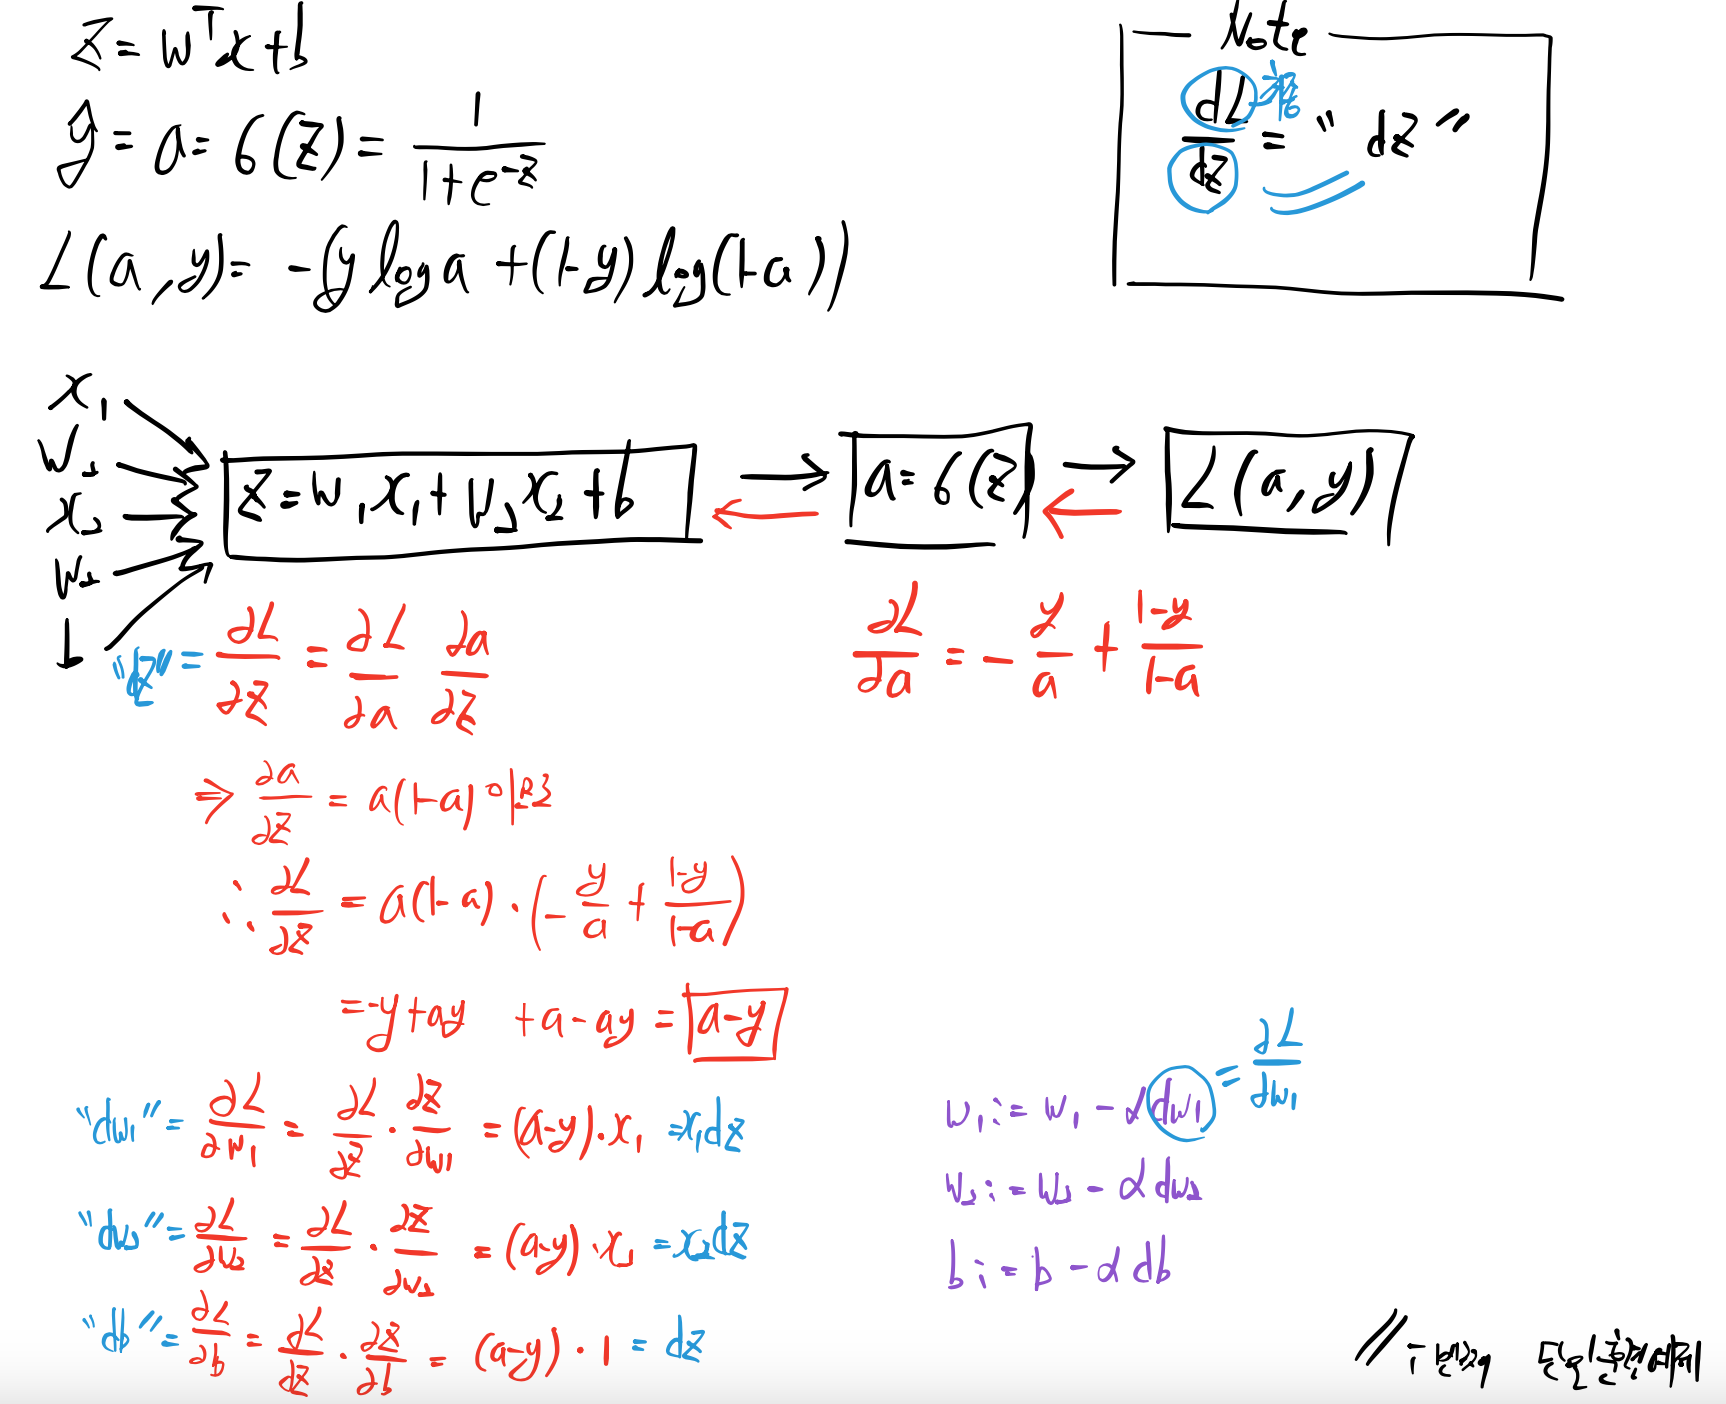 z = wᵀx + b
ŷ = a = σ(z) = 1/(1+e^-z)
L(a, y) = -(y log a + (1-y) log(1-a))
Note
dL/dz = "dz"
x₁
w₁
x₂
w₂
b
z = w₁x₁ + w₂x₂ + b → a = σ(z) → L(a, y)
"dz" = ∂L/∂z = ∂L/∂a ∂a/∂z
∂L/∂a = - y/a + (1-y)/(1-a)
⇒ ∂a/∂z = a(1-a)
∴ ∂L/∂z = a(1-a) · (- y/a + (1-y)/(1-a))
= -y + ay + a - ay = a-y
"dw₁" = ∂L/∂w₁ = ∂L/∂z · ∂z/∂w₁ = (a-y)·x₁ = x₁dz
"dw₂" = ∂L/∂w₂ = ∂L/∂z · ∂z/∂w₂ = (a-y)·x₂ = x₂dz
"db" = ∂L/∂b = ∂L/dz · ∂z/∂b = (a-y)·1 = dz
w₁ := w₁ - α dw₁ = ∂L/∂w₁
w₂ := w₂ - α dw₂
b := b - α db
단일